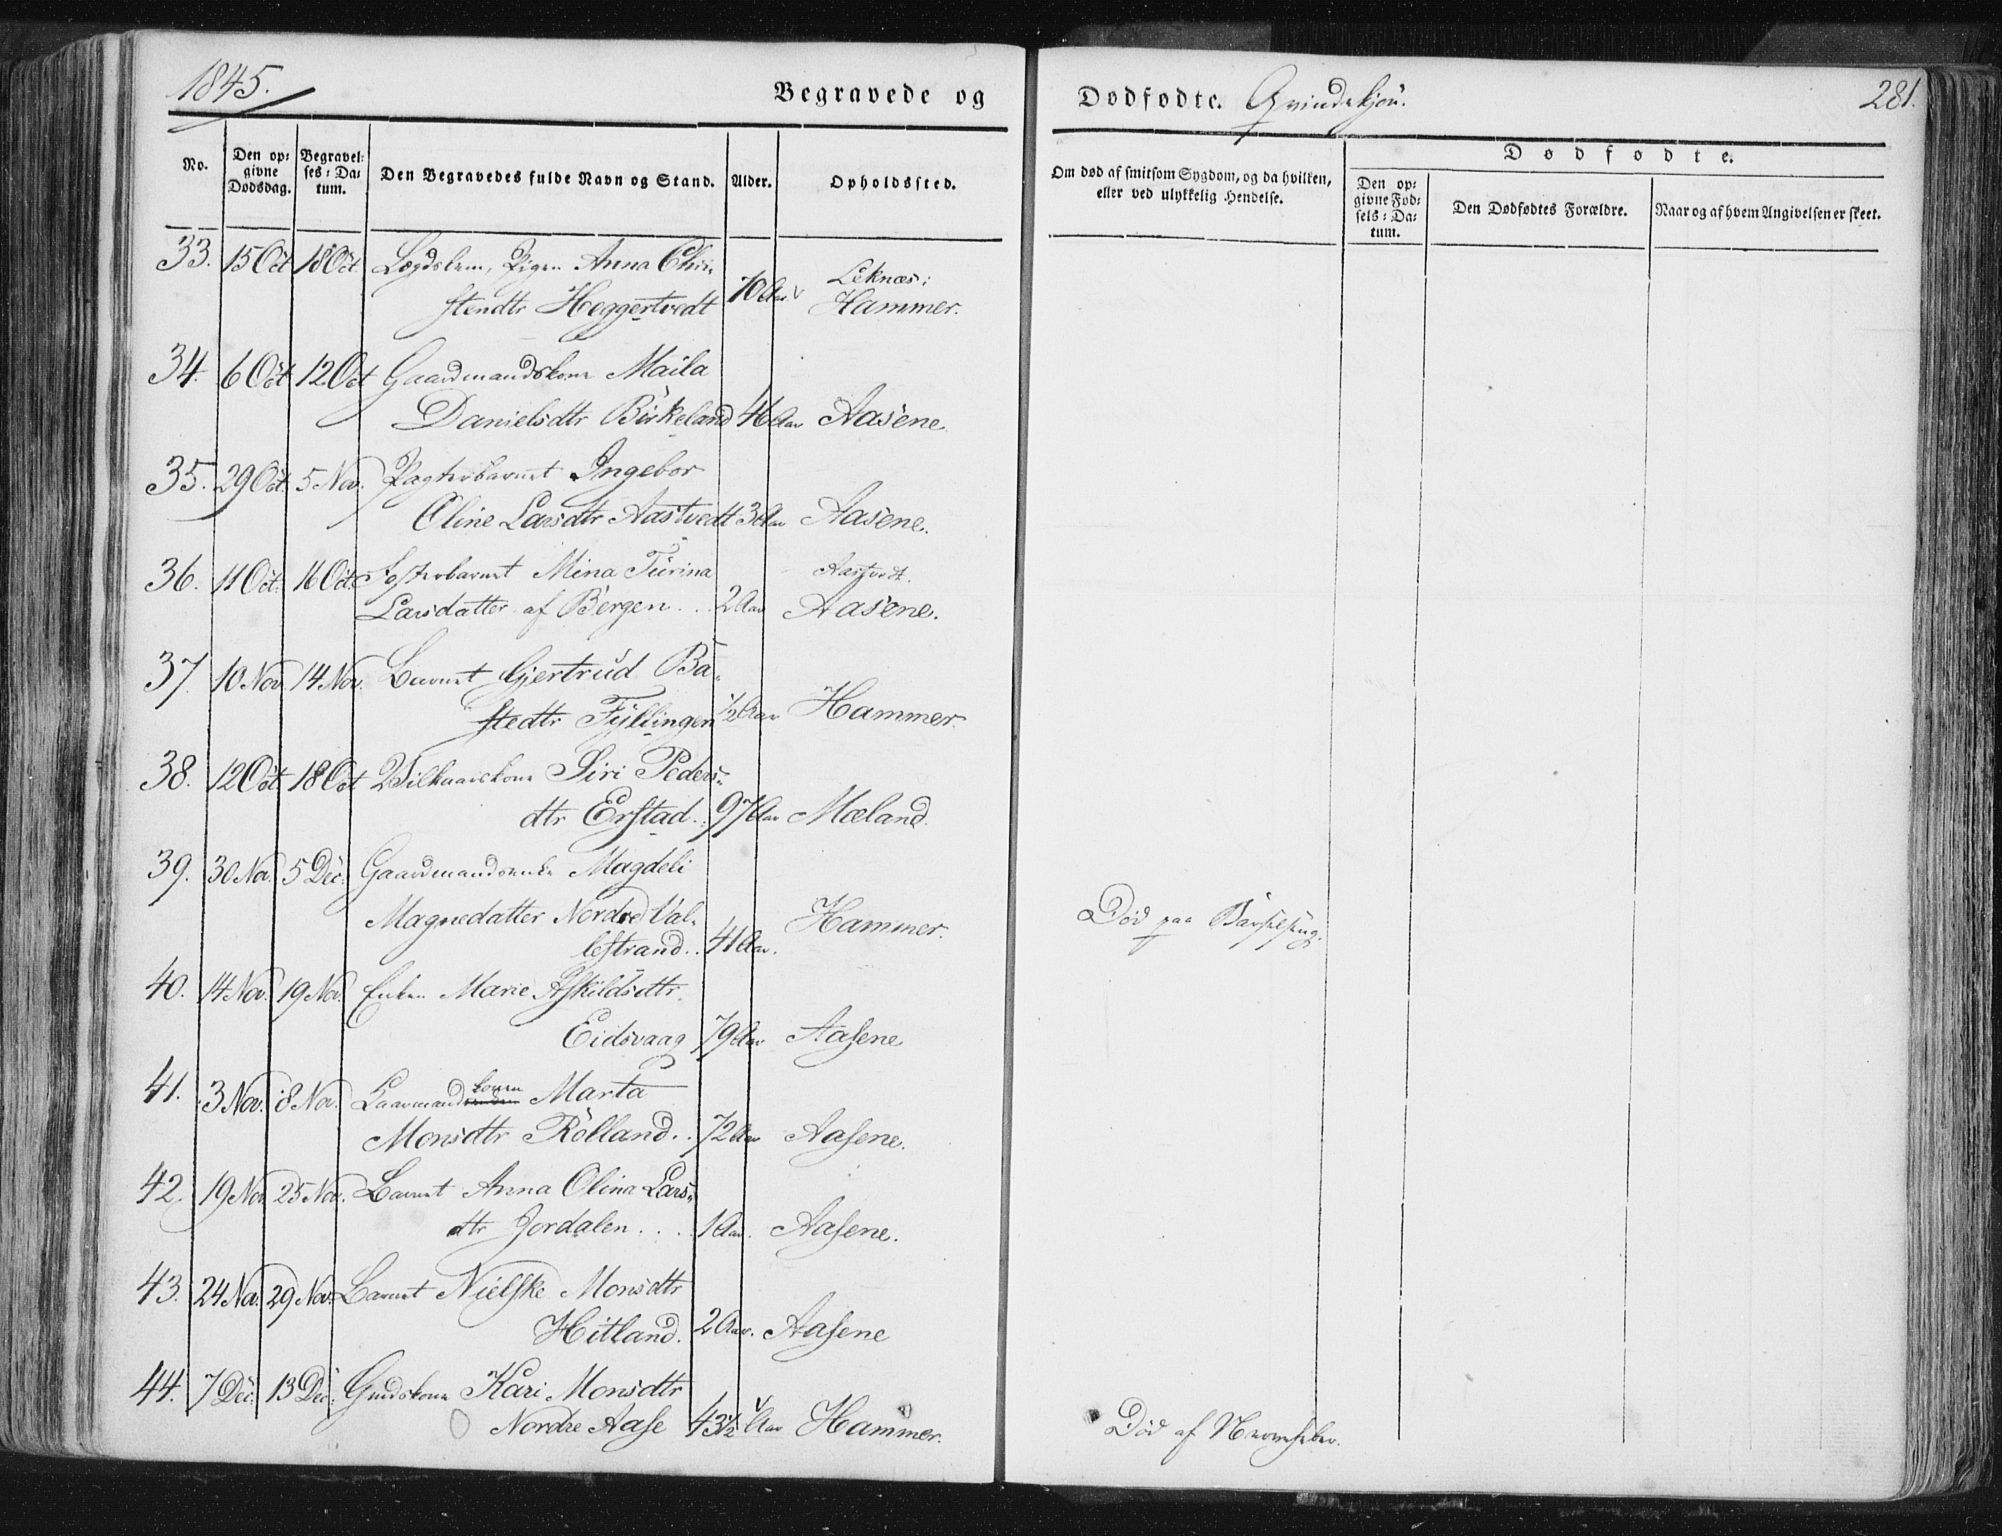 1845.
Begravede og Dødfødte. Qvindekjøn.
281.
No.
Den op-
givne
Dødsdag.
Begravel-
ses-Da-
tum.
Den Begravedes fulde Navn og Stand.
Alder.
Opholdssted.
Om død af smitsom Sygdom, og da hvilken,
eller ved ulykkelig Hendelse.
Dødfødte.
Den op-
givne Fød-
sels-Da-
tum.
Den Dødfødtes Forældre.
Naar og af hvem Angivelsen er skeet.
33. 15 Oct 18 Oct Lægdslem, Pigen Anna Chri-
stendtr Heggertvedt 70 Aar Leknæs:
Hammer.
34. 6 Oct 12 Oct Gaardmandskone Maila
Danielsdtr Birkeland 46 Aar Aasene.
35. 29 Oct. 5 Nov. Pagterbarnet Ingebor
Oline Larsdtr Aastvedt 3 Aar Aasene.
36. 11 Oct. 16 Oct. Fosterbarnet Mina Turina Aastvedt.
Larsdatter af Bergen .. 2 Aar Aasene.
37. 10 Nov. 14 Nov. Barnet Gjertrud Ba-
stedtr Fyllingen ½ Aar Hammer.
38. 12 Oct. 18 Oct Vilkaarskone Siri Peders-
dtr Erstad .. 97 Aar Mæland.
39. 30 Nov. 5 Dec. Gaardmandsenke Magdeli
Magnedatter Nordre Val-
lestrand .. 41 Aar. Hammer. Død paa Barselseng.
40. 14 Nov. 19 Nov. Enken Marie Askildsdtr.
Eidsvaag 79 Aar Aasene
41. 3 Nov. 8 Nov. Gaardmandskonen Marta
Monsdtr Rolland .. 72 Aar Aasene.
42. 19 Nov. 25 Nov. Barnet Anna Olina Lars-
dtr Jordalen .... 1 Aar. Aasene.
43. 24 Nov. 29 Nov. Barnet Nielske Monsdtr
Hitland. 2 Aar. Aasene
44. 7 Dec. 13 Dec. Kari Monsdtr
Nordre Aase 43½ Aar Hammer. Død af Nervefeber.